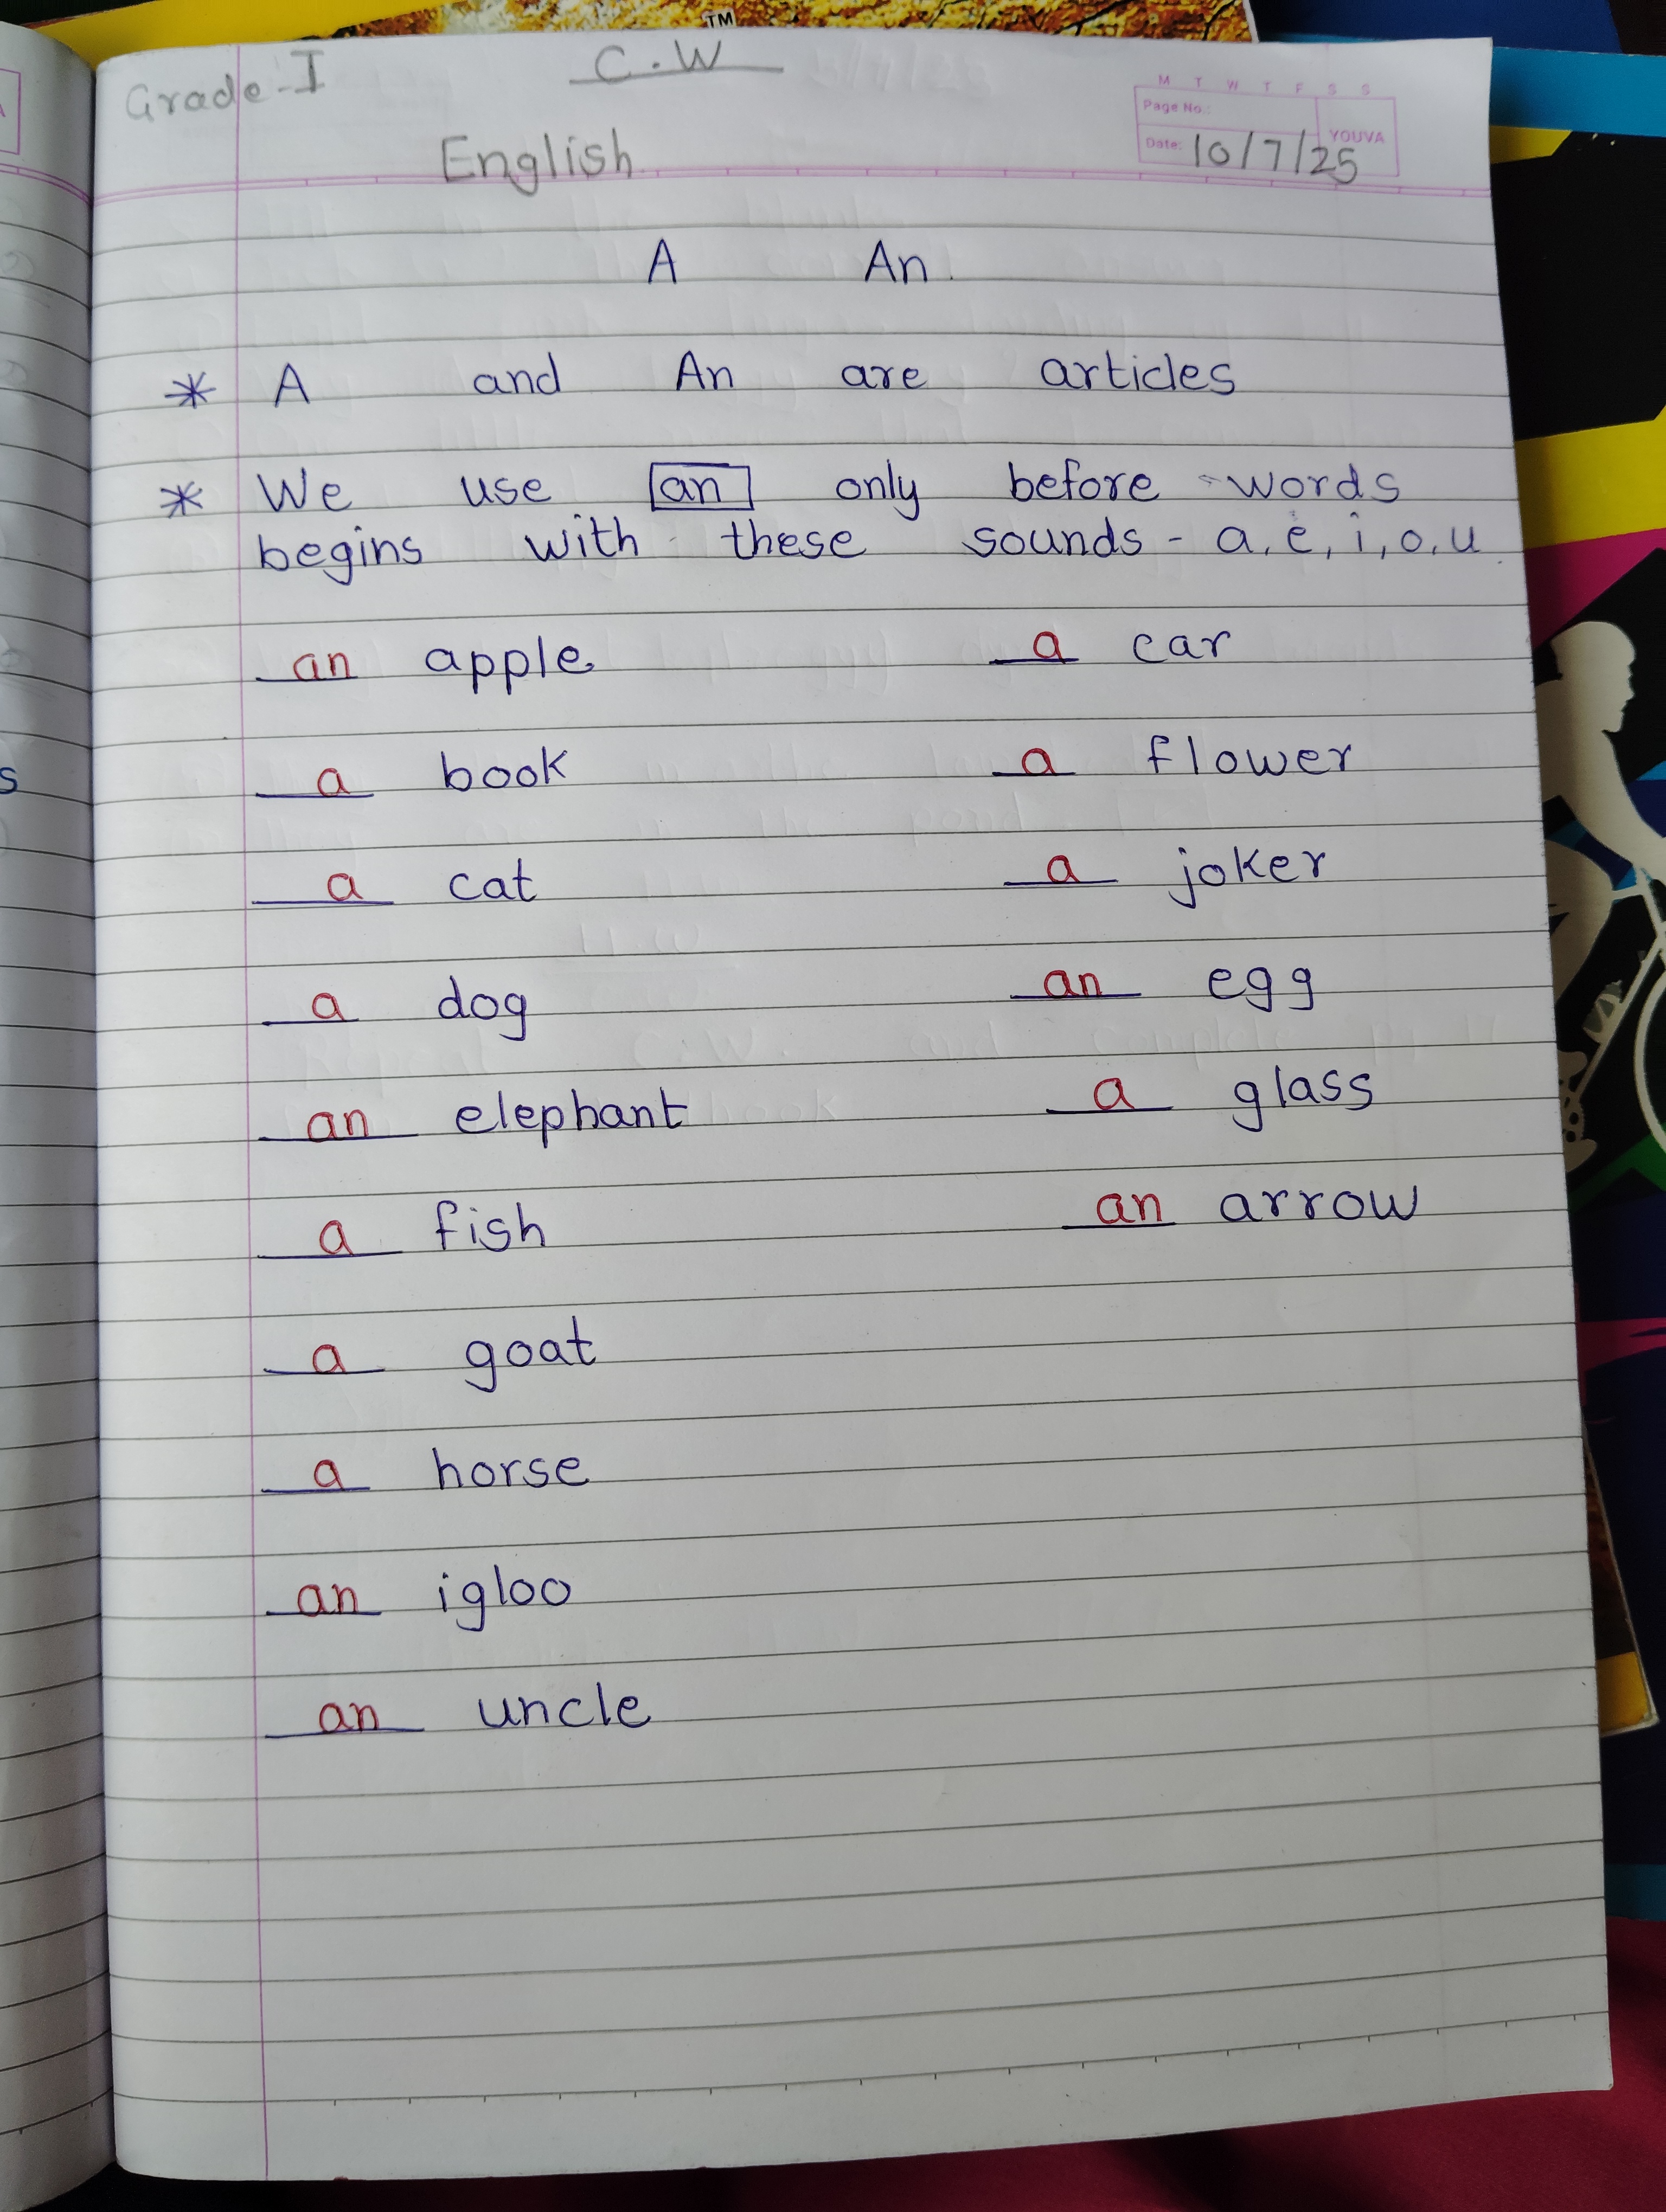 TM
Grade-I
C.W
M T W T F S S
Page No.:
YOUVA
English
Date: 10/7/25
A An.
* A and An are articles
* We use an only before words
begins with these sounds - a, e, i, o, u.
an apple a car
a book a flower
a cat a joker
a dog an egg
an elephant a glass
a fish an arrow
a goat
a horse
an igloo
an uncle
s